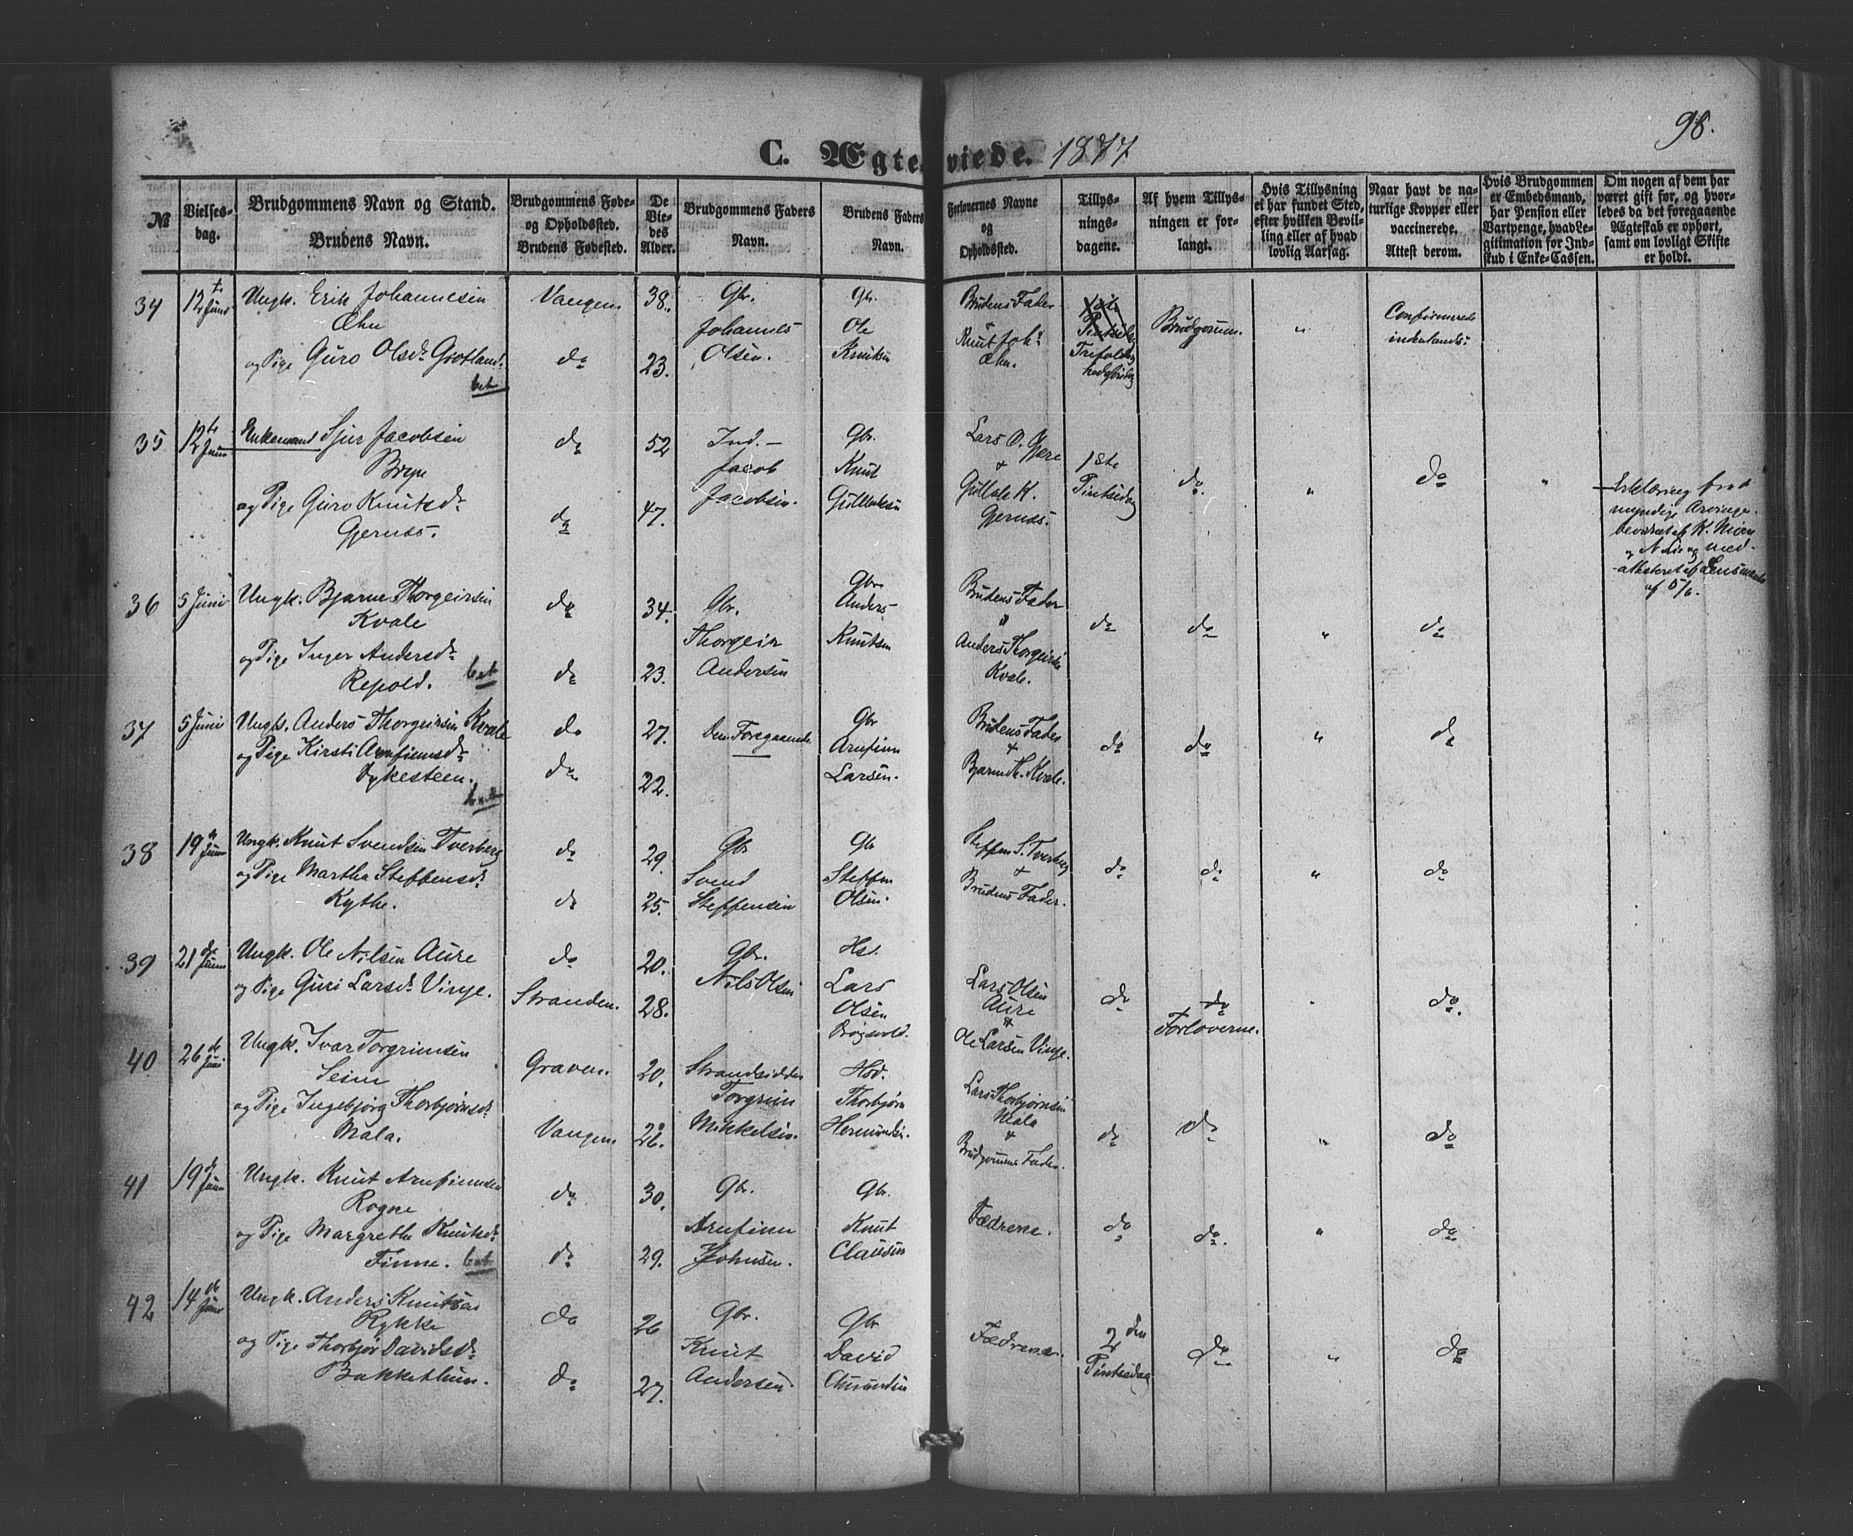 98.
C. Ægteviede. 1877
№
Vielses-
dag.
Brudgommens Navn og Stand.
Brudens Navn.
Brudgommens Føde-
og Opholdssted.
Brudens Fødested.
De
Vie-
des
Alder.
Brudgommens Faders
Navn.
Brudens Faders
Navn.
Forlovernes Navne
og
Opholdssted.
Tillys-
nings-
dagene.
Af hvem Tillys-
ningen er for-
langt.
Hvis Tillysning
ei har fundet Sted,
efter hvilken Bevil-
ling eller af hvad
lovlig Aarsag.
Naar havt de na-
turlige Kopper eller
vaccinerede.
Attest derom.
Hvis Brudgommen
er Embedsmand,
har Pension eller
Vartpenge, hvad Le-
gitimation for Ind-
skud i Enke-Cassen.
Om nogen af dem har
været gift før, og hvor-
ledes da det foregaaende
Ægteskab er ophørt,
samt om lovligt Skifte
er holdt.
34
12te Juni
Ungk. Erik Johannesen
og Pige Guro Olsdr Grotland.
bet
Vangen
do
38.
23.
Gbr.
Johannes
Olsen.
Gbr.
Ole
Knutsen
Brudens Fader
Knut Joh.
1ste
Pintsedag
Brudgomm.
"
Confirmerede
indenlands.
35
12te Juni
Enkemand Sjur Jacobsen
og Pige Guro Knutsdr
Gjernes.
do
do
52
47.
Ind. –
Jacob
Jacobsen.
Gbr.
Knut
Gullaksen
Lars O. Gjere
Gullak K.
Gjernes.
1ste
Pintsedag
do.
"
do
"
Erklæring fra
myndige Arvinger
bevidnet af K. Moen
og med-
attesteret af Lensmanden
af 5/6.
36
5 Juni
Ungk. Bjarne Thorgeirsen
Kvale
og Pige Inger Andersdr
Repold. bet
do
do
34.
23.
Gbr.
Thorgeir
Andersen
Gbr
Anders
Knutsen
Brudens Fader
Anders Thorgeirsen
Kvale.
do
do
"
do
37
5 Juni
Ungk. Anders Thorgeirsen Kvale
og Pige Kirsti Arnfinnsdr
Dykesteen.
bet
do
do
27.
22.
Den Foregaaende
Gbr
Arnfinn
Larsen.
Brudens Fader
+
Bjarne Th. Kvale.
do
do
"
do
38
19de Juni
Ungk. Knut Svendsen Tverberg
og Pige Martha Steffensdr
Kythe.
do
do
29.
25.
Gbr
Svend
Steffensen
Gbr
Steffen
Olsen.
Steffen S. Tverberg
+
Brudens Fader.
do
do
"
do
39
21de Juni
Ungk. Ole Nilsen Aure
og Pige Guri Larsdr Vinje.
do
Stranden.
20.
28.
Gbr.
Nils Olsen
Hsl.
Lars
Olsen
Lars Olsen
Aure
&
Ole Larsen Vinje.
do
do
Forloverne.
"
do.
40
26de Juni
Ungk. Ivar Torgrimsen
Seim
og Pige Ingebjørg Thorbjørnsdr
Mala.
Graven.
Vangen
20.
26.
Strandsidder
Torgrim
Mikkelsen.
Hsd.
Thorbjørn
Hermundsen.
Lars Thorbjørnsen
Mala
&
Brudgommens Fader.
do
do
"
do
41
19de Juni
Ungk. Knut Arnfinnsen
Rogne
og Pige Margretha Knutsdr
Finne. bet
do
do
30.
29.
Gbr.
Arnfinn
Johnsen.
Gbr.
Knut
Clausen
Fædrene.
do
do.
"
do
42
14de Juni
Ungk. Anders Knutsen
Rykke
og Pige Thorbjør Davidsdr
Bakkethun.
do
do
26
27.
Gbr.
Knut
Andersen.
Gbr
David
Amundsen
Fædrene.
2den
Pintsedag
do
"
do